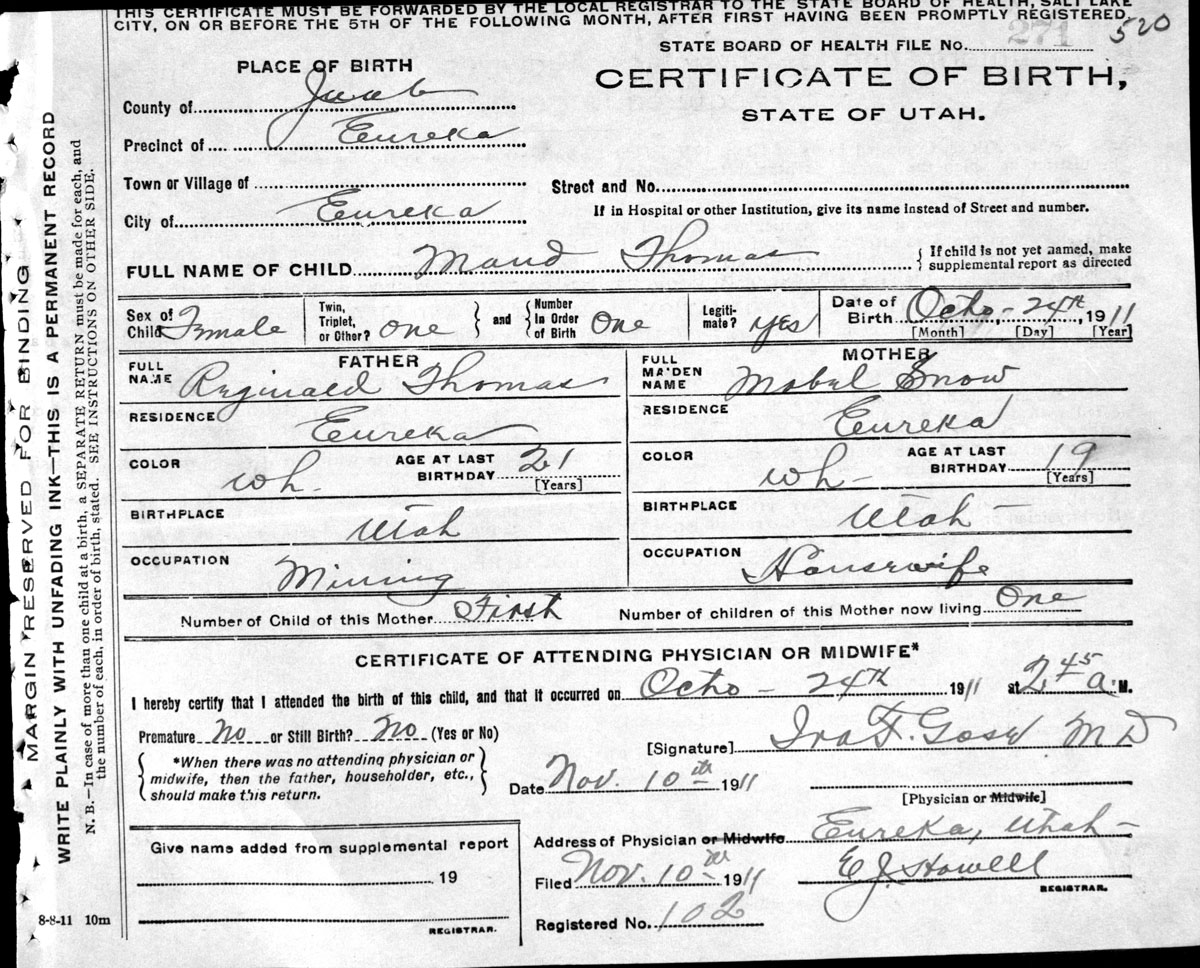 THIS CERTIFICATE MUST BE FORWARDED BY THE LOCAL REGISTRAR TO THE STATE BOARD OF HEALTH, SALT LAKE
CITY, ON OR BEFORE THE 5TH OF THE FOLLOWING MONTH, AFTER FIRST HAVING BEEN PROMPTLY REGISTERED.
520
STATE BOARD OF HEALTH FILE No. 271
PLACE OF BIRTH
CERTIFICATE OF BIRTH,
STATE OF UTAH.
County of Juab
Precinct of Eureka
Town or Village of
Street and No.
City of Eureka
If in Hospital or other Institution, give its name instead of Street and number.
FULL NAME OF CHILD Maud Thomas { If child is not yet named, make
supplemental report as directed
Sex of Child Female
Twin, Triplet, or Other? one } and { Number In Order of Birth One
Legitimate? yes
Date of Birth Octo - 24th, 1911
[Month] [Day] [Year]
FATHER
MOTHER
FULL NAME Reginald Thomas
FULL MAIDEN NAME Mabel Snow
RESIDENCE Eureka
RESIDENCE Eureka
COLOR wh. AGE AT LAST BIRTHDAY 21 [Years]
COLOR wh- AGE AT LAST BIRTHDAY 19 [Years]
BIRTHPLACE Utah
BIRTHPLACE Utah -
OCCUPATION Mining
OCCUPATION Housewife
Number of Child of this Mother First Number of children of this Mother now living One
CERTIFICATE OF ATTENDING PHYSICIAN OR MIDWIFE*
I hereby certify that I attended the birth of this child, and that it occurred on Octo - 24th 1911 at 2 45 a. M.
Premature No or Still Birth? No (Yes or No)
{ *When there was no attending physician or
midwife, then the father, householder, etc.,
should make this return. }
[Signature] Ira F. M D
Date Nov. 10th 1911
[Physician or Midwife]
Address of Physician or Midwife Eureka, Utah -
Filed Nov. 10th 1911 E J Howell
REGISTRAR.
Registered No. 102
Give name added from supplemental report
19
REGISTRAR.
8-8-11 10m
MARGIN RESERVED FOR BINDING
WRITE PLAINLY WITH UNFADING INK—THIS IS A PERMANENT RECORD
N. B.—In case of more than one child at a birth, a SEPARATE RETURN must be made for each, and
the number of each, in order of birth, stated. SEE INSTRUCTIONS ON OTHER SIDE.